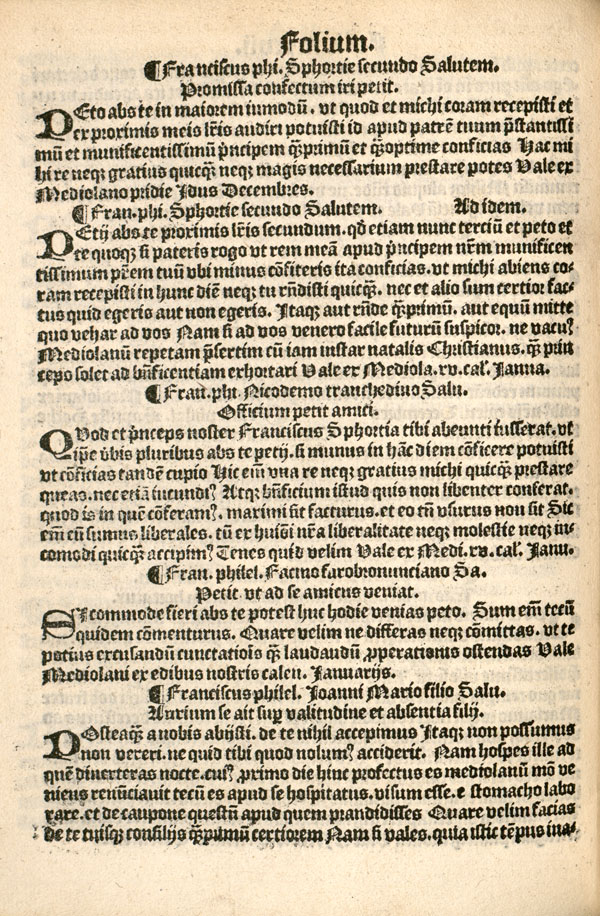 Folium.
¶Franciscus phi. Sphortie secundo Salutem.
Promissa confectum iri petit.
PEto abs te in maiorem inmodū. vt quod et michi coram recepisti et
ex proximis meis lr̄is audiri potuisti id apud patrē tuum p̄stantissi
mū et munificentissimū p̄ncipem qꝫprimū et qꝫoptime conficias Hac mi
hi re neqꝫ gratius quicqꝫ neqꝫ magis necessarium prestare potes Vale ex
Mediolano pridie Idus Decembres.
¶Fran. phi. Sphortie secundo Salutem. Ad idem.
PEtij abs te proximis lr̄is secundum. qd etiam nunc terciū et peto et
te quoqꝫ si pateris rogo vt rem meā apud p̄ncipem nr̄m munificen
tissimum pr̄em tuū vbi minus cōfiteris ita conficias. vt michi abiens co-
ram recepisti in hunc diē neqꝫ tu rn̄disti quicqꝫ. nec et alio sum certior fac-
tus quid egeris aut non egeris. Itaqꝫ aut rn̄de qꝫprimū. aut equū mitte
quo vehar ad vos Nam si ad vos venero facile futurū suspicor. ne vacuꝰ
Mediolanū repetam p̄sertim cū iam instar natalis Christianus. qꝫ prin
cepo solet ad bn̄ficentiam exhortari Vale ex Mediola. xv. cal. Janua.
¶Fran. phi. Nicodemo tranchedino Salu.
Officium petit amici.
QVod et p̄nceps noster Franciscus Sphortia tibi abeunti iusserat. vt
ip̄e v̄bis pluribus abs te petij. si munus in hāc diem cōficere potuisti
vt cōficias tandē cupio Hic em̄ vna re neqꝫ gratius michi quicqꝫ prestare
queas. nec etiā iucundiꝰ Atqꝫ bn̄ficium istud quis non libenter conferat.
quod is in quē cōferam. maximi sit facturus. et eo tn̄ vsurus non sit Sic
em̄ cū sumus liberales. tū ex huiōi nr̄a liberalitate neqꝫ molestie neqꝫ in-
comodi quicqꝫ accipimꝰ Tenes quid velim Vale ex Medi. xv. cal. Janu.
¶Fran. philel. Facino farobronunciano Sa.
Petit. vt ad se amicus veniat.
SI commode fieri abs te potest huc hodie venias peto. Sum em̄ tecū
quidem cōmenturus. Quare velim ne differas neqꝫ cōmittas. vt te
potius excusandū cunctatiois qꝫ laudandū ꝓperationis ostendas Vale
Mediolani ex edibus nostris calen. Januarijs.
¶Franciscus philel. Joanni Mario filio Salu.
Anxium se ait sup valitudine et absentia filij.
POsteaqꝫ a nobis abijsti. de te nihil accepimus Itaqꝫ non possumus
non vereri. ne quid tibi quod nolumꝰ acciderit. Nam hospes ille ad
quē diuerteras nocte. cuiꝰ primo die hinc profectus es mediolanū mō ve
niens renūciauit tecū es apud se hospitatus. visum esse. e stomacho labo
rare. et de caupone questū apud quem prandidisses Quare velim facias
de te tuisqꝫ consilijs qꝫprimū certiorem Nam si vales. quia istic tēpus ina-